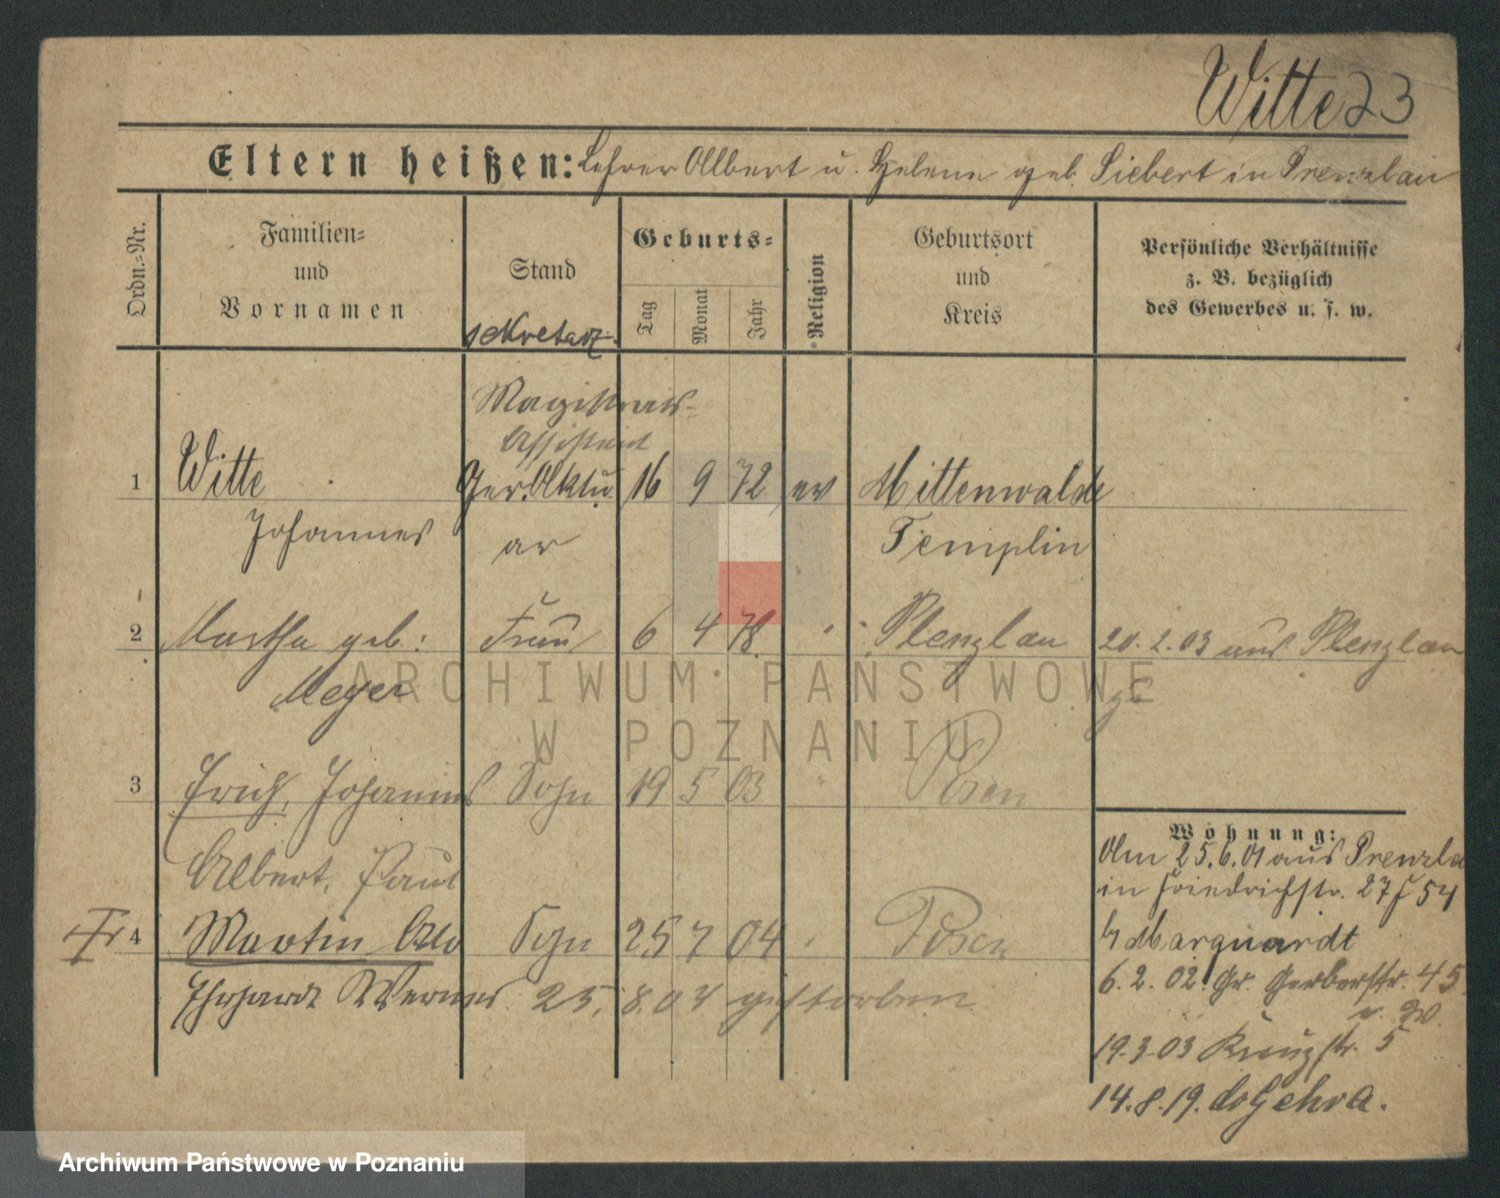 Witte 23
Eltern heißen: Lehrer Albert u. Helene geb. Siebert in Prenzlau
Ordn.-Nr.
Familien-
und
Vornamen
Stand
sekretär
Geburts-
Tag
Monat
Jahr
Religion
Geburtsort
und
Kreis
Persönliche Verhältnisse
z. B. bezüglich
des Gewerbes u. s. w.
Magistrats-
Assistent
1 Witte Ger. Aktu 16 9 72 ev Mittenwalde
Johannes ar Templin
2 Martha geb: Frau 6 4 78 " Prenzlau 20.2.03 aus Prenzlau
Meyer
3 Erich, Johannes Sohn 19 5 03 " Posen
Albert, Paul
4 Martin Otto Sohn 25 7 04 " Posen
Ehrhardt Werner 25.8.04 gestorben
Wohnung:
Am 25.6.01 aus Prenzla
in Friedrichstr. 27
b Marquardt
6.2.02 Gr. Gerberstr. 45
19.3.03 Kreuzstr. 5
14.8.19.
ARCHIWUM PAŃSTWOWE
W POZNANIU
Archiwum Państwowe w Poznaniu